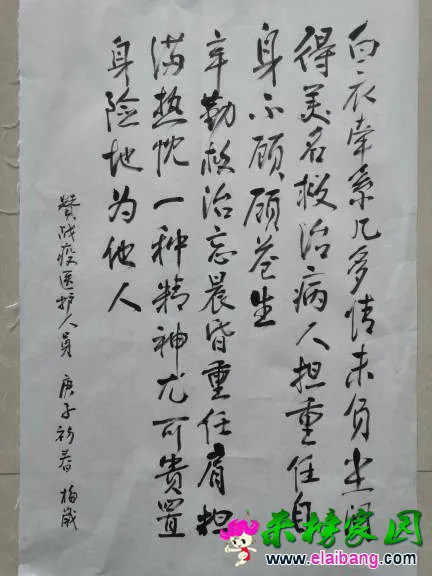 白衣牵系几多情未负
得美名救治病人担重任自
身不顾顾苍生
辛勤救治忘晨昏重任肩担
满热忱一种精神尤可贵置
身险地为他人
赞战疫医护人员 庚子初春
来榜家园
www.elaibang.com